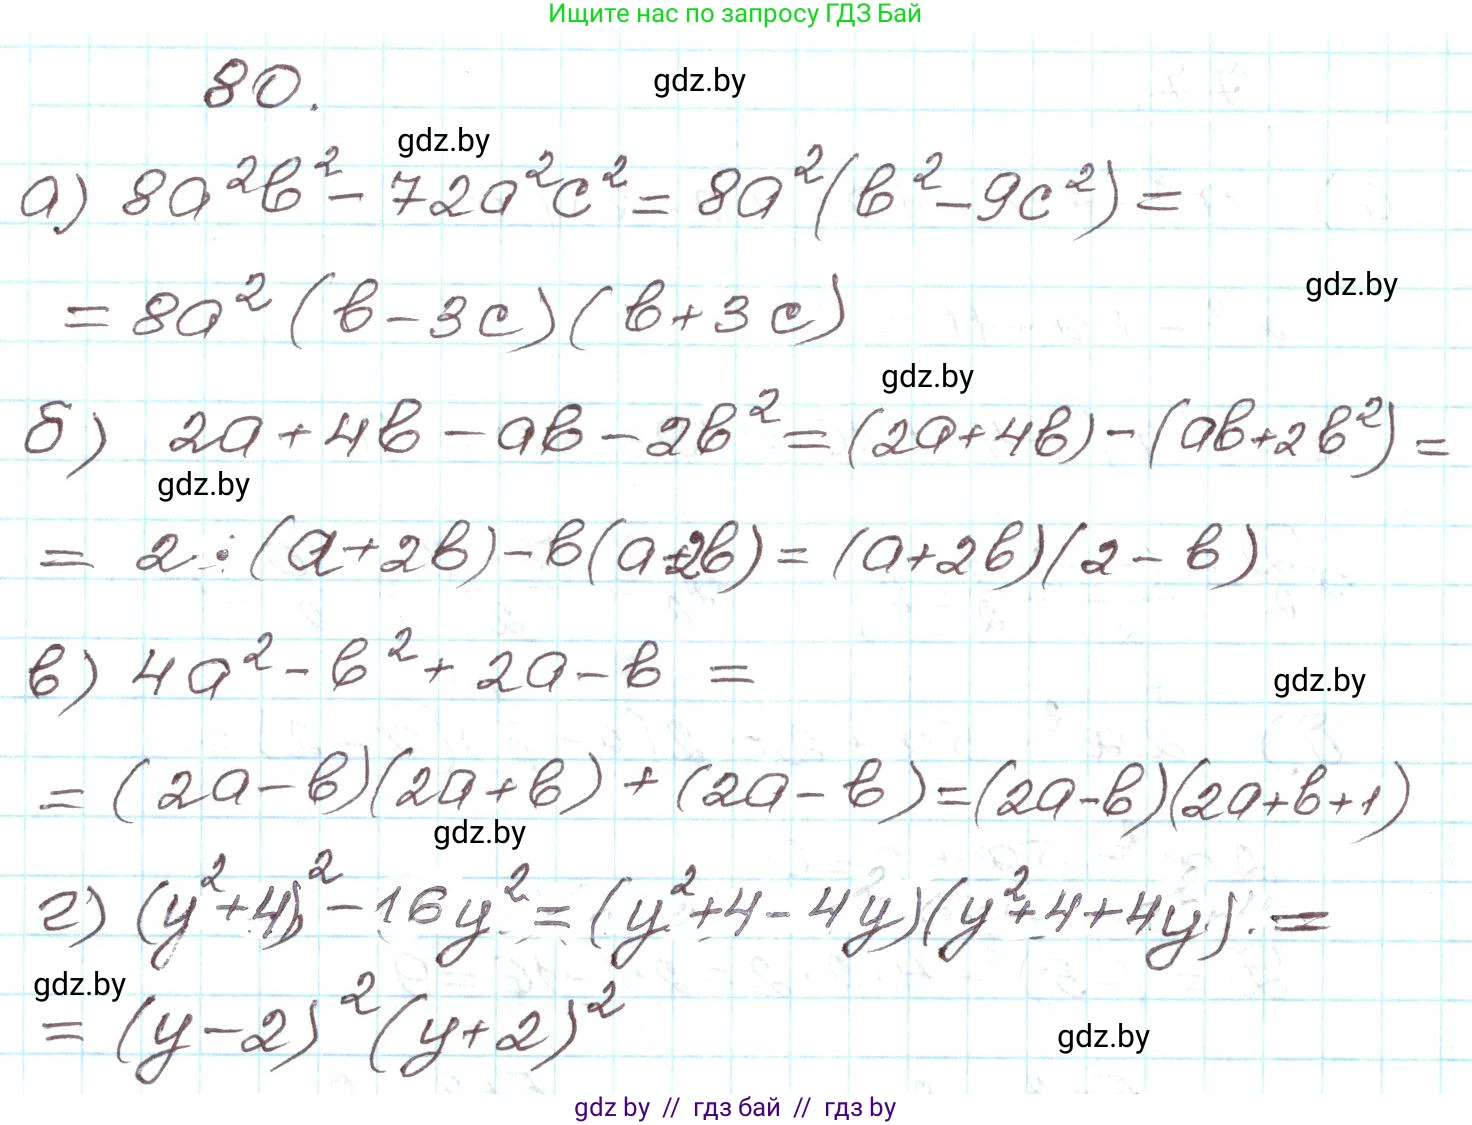 Ищите нас по запросу ГДЗ Бай
80.
gdz.by
gdz.by
а) 8a²b² - 72a²c² = 8a²(b² - 9c²) =
gdz.by
= 8a² (b - 3c) (b + 3c)
gdz.by
б) 2a + 4b - ab - 2b² = (2a + 4b) - (ab + 2b²) =
gdz.by
= 2 · (a + 2b) - b(a + 2b) = (a + 2b)(2 - b)
в) 4a² - b² + 2a - b =
gdz.by
= (2a - b)(2a + b) + (2a - b) = (2a - b)(2a + b + 1)
gdz.by
г) (y² + 4)² - 16y² = (y² + 4 - 4y)(y² + 4 + 4y) =
gdz.by
= (y - 2)² (y + 2)²
gdz.by
gdz by // гдз бай // гдз by